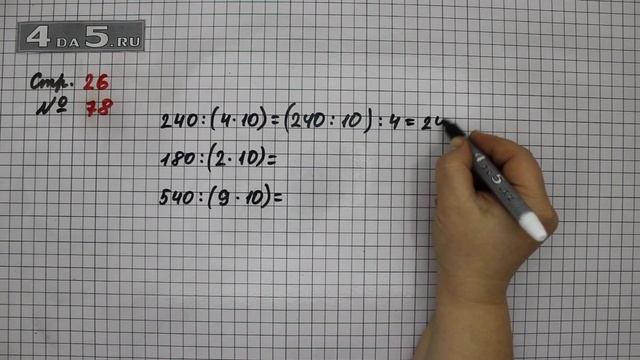 4 DA 5.RU
Стр. 26
№ 78
240:(4·10)=(240:10):4=24
180:(2·10)=
540:(9·10)=